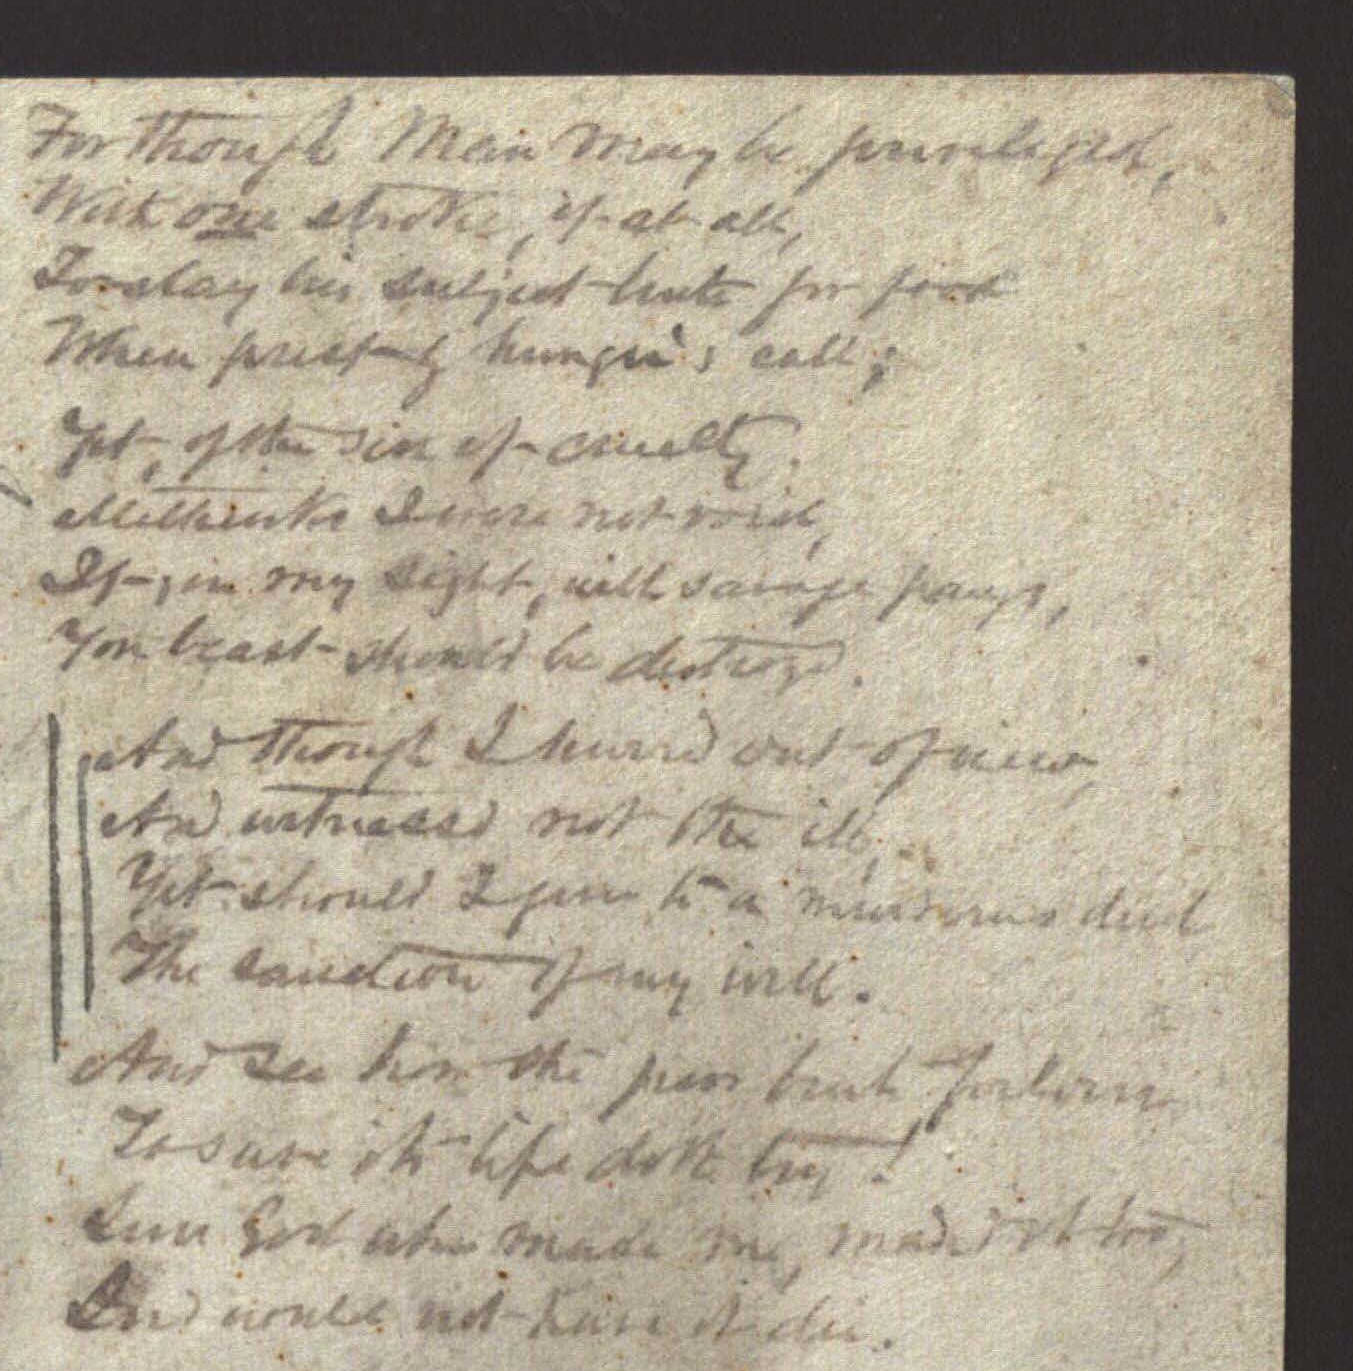 For though Man may be privileged,
With one stroke, if at all,
To slay his subject brute for food
When prest by hunger's call;
Yet, of the sin of cruelty
Methinks I were not void,
If, in my sight, with savage pangs,
Yon beast should be destroy'd.
And though I hurried out of view
And witness'd not the ill,
Yet should I give to a murderous deed
The sanction of my will.
And see how the poor brute forlorn
To save its life doth try!
Sure God who made me, made it too,
And would not have it die.